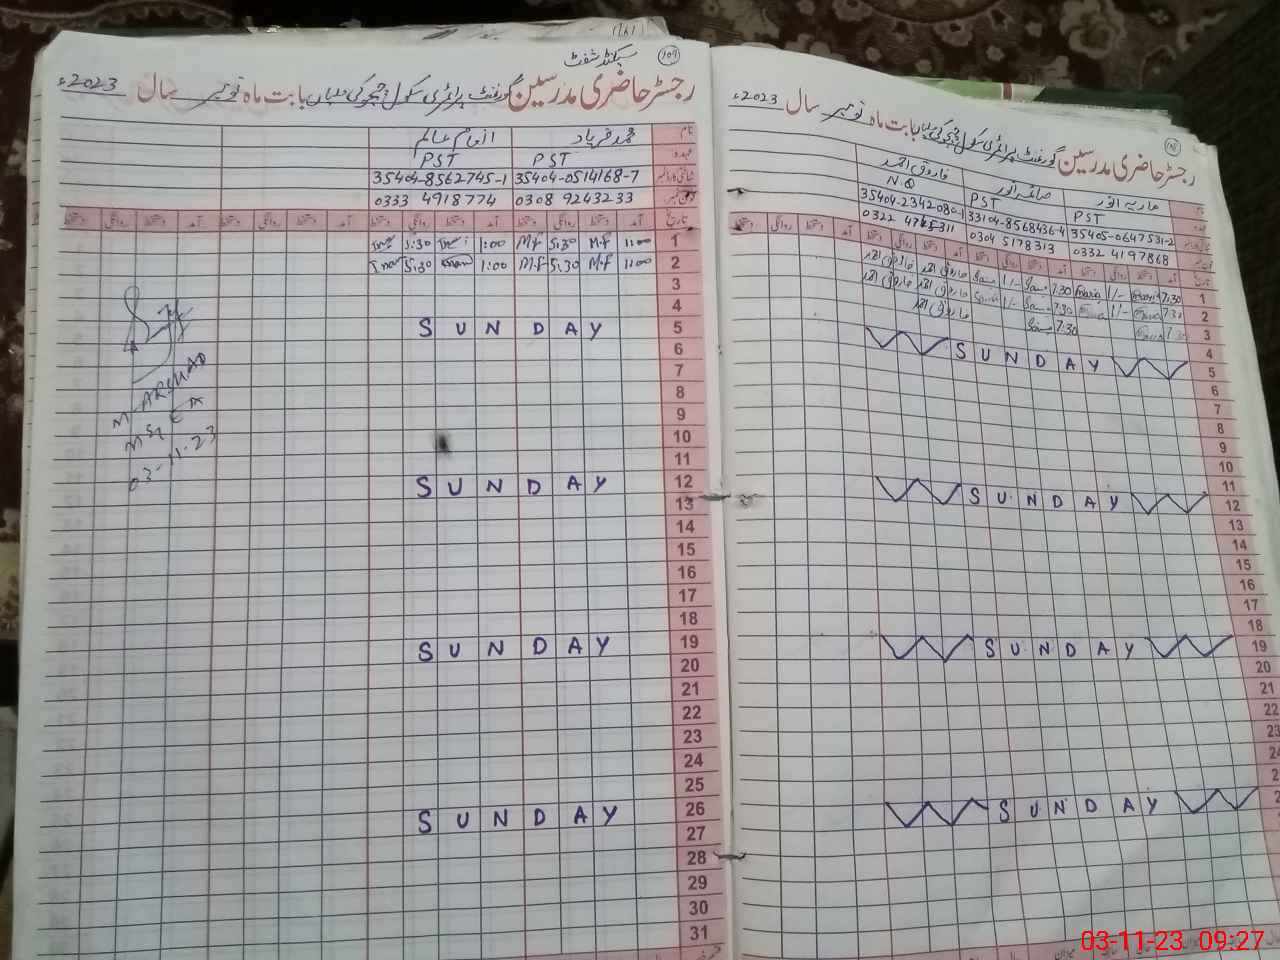 (109)
سیکنڈ شفٹ
رجسٹر حاضری مدرسین گورنمنٹ پرائمری سکول بابت ماہ نومبر سال 2023ء
نام محمد فریاد انعام عالم
عہدہ PST PST
35404-0514168-7 35404-8562745-1
0308 9243233 0333 4918774
تاریخ آمد دستخط روانگی دستخط آمد دستخط روانگی دستخط آمد دستخط روانگی دستخط آمد دستخط روانگی دستخط
1 1:00 M.F 5:30 M.F 1:00 5:30
2 1:00 M.F 5:30 M.F 1:00 5:30
3
4
5 SUNDAY
6
7
8
9
10
11
12 SUNDAY
13
14
15
16
17
18
19 SUNDAY
20
21
22
23
24
25
26 SUNDAY
27
28
29
30
31
M. ARSHAD
MEA
03-11-23
رجسٹر حاضری مدرسین گورنمنٹ پرائمری سکول بابت ماہ نومبر سال 2023ء
نام ماریہ انور صائمہ انور فاروق احمد
PST PST N.Q
35405-0647531-2 33104-8568436-4 35404-2342080-1
0332 4197868 0304 5178313 0322 4765311
تاریخ آمد دستخط روانگی دستخط آمد دستخط روانگی دستخط آمد دستخط روانگی دستخط آمد دستخط
1 7:30 Maria 1/- Maria 7:30 1/- فاروق احمد فاروق احمد
2 7:30 1/- 7:30 1/- فاروق احمد فاروق احمد
3 7:30 7:30 فاروق احمد
4
5 SUNDAY
6
7
8
9
10
11
12 SUNDAY
13
14
15
16
17
18
19 SUNDAY
20
21
22
23
24
SUNDAY
03-11-23 09:27